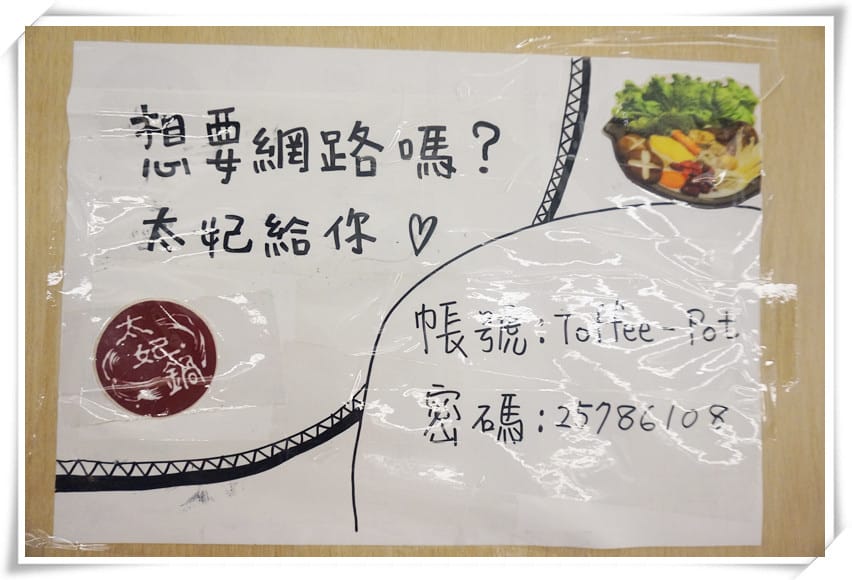 想要網路嗎?
太妃給你♡
太妃鍋
帳號:Toffee-Pot
密碼:25786108